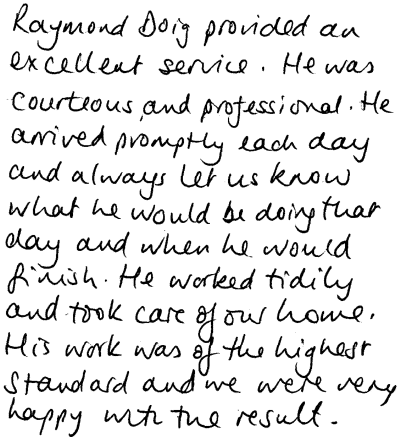 Raymond Doig provided an
excellent service. He was
courteous, and professional. He
arrived promptly each day
and always let us know
what he would be doing that
day and when he would
finish. He worked tidily
and took care of our home.
His work was of the highest
standard and we were very
happy with the result.